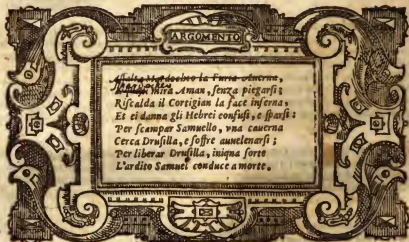 ARGOMENTO
Assalta Mardocheo la Furia Auerna,
Mira Aman, senza piegarsi;
Riscalda il Cortigian la face inferna,
Et ei danna gli Hebrei confusi, e sparsi:
Per scampar Samuello, vna cauerna
Cerca Drusilla, e soffre auuelenarsi;
Per liberar Drusilla, iniqua sorte
L'ardito Samuel conduce a morte.